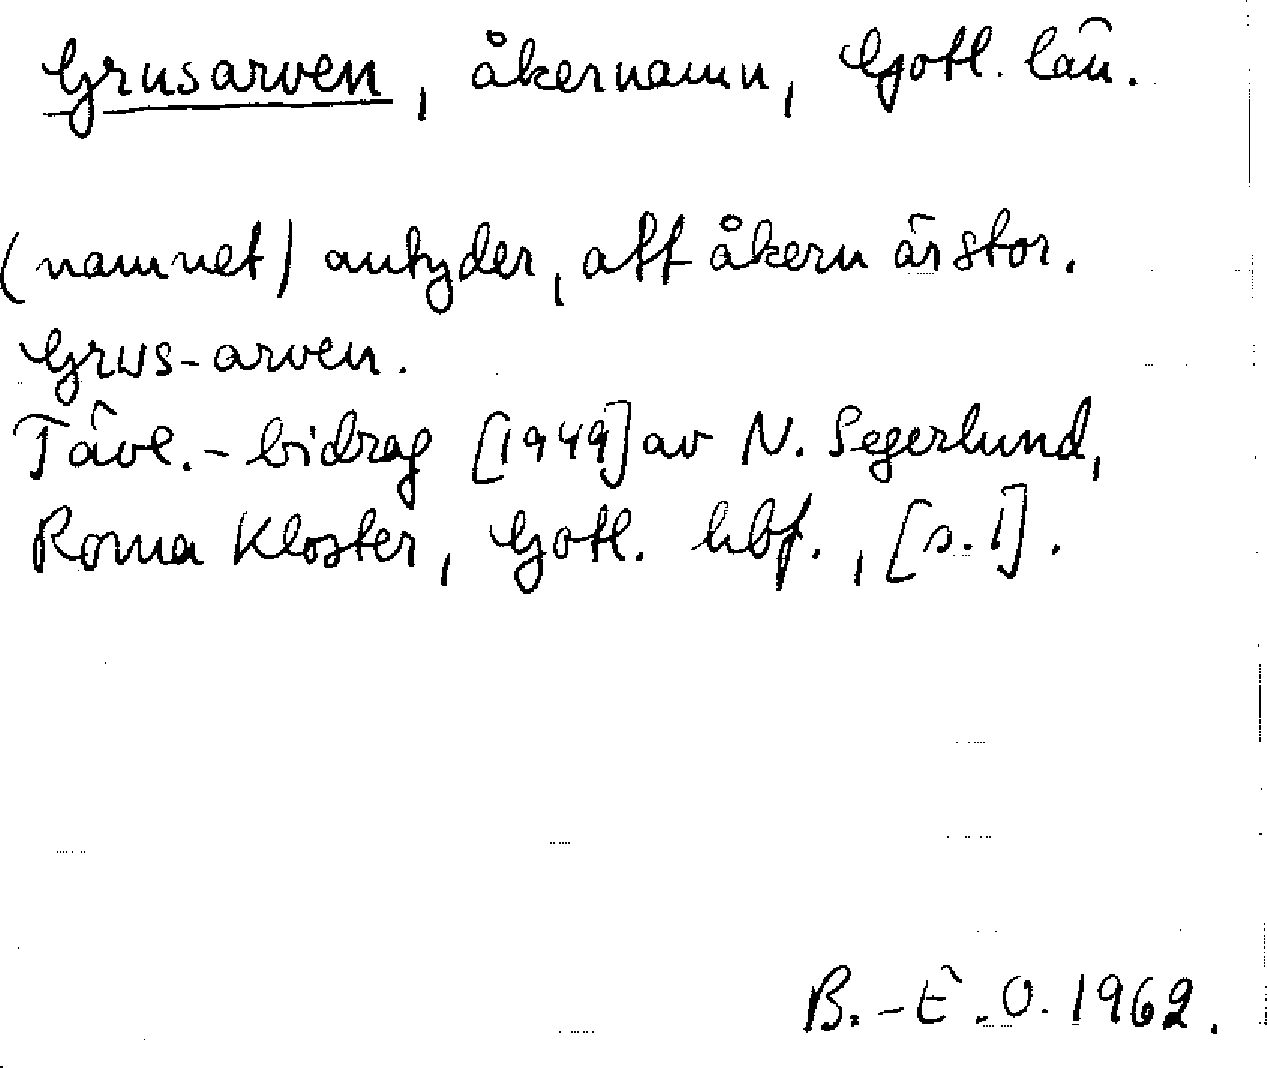 Grusarven, åkernamn, Gotl. län.
(namnet) antyder, att åkern är stor.
Grus-arven.
Tävl.-bidrag [1949] av N. Segerlund,
Roma Kloster, Gotl. hbf., [s. 1].
B.-E. O. 1962.